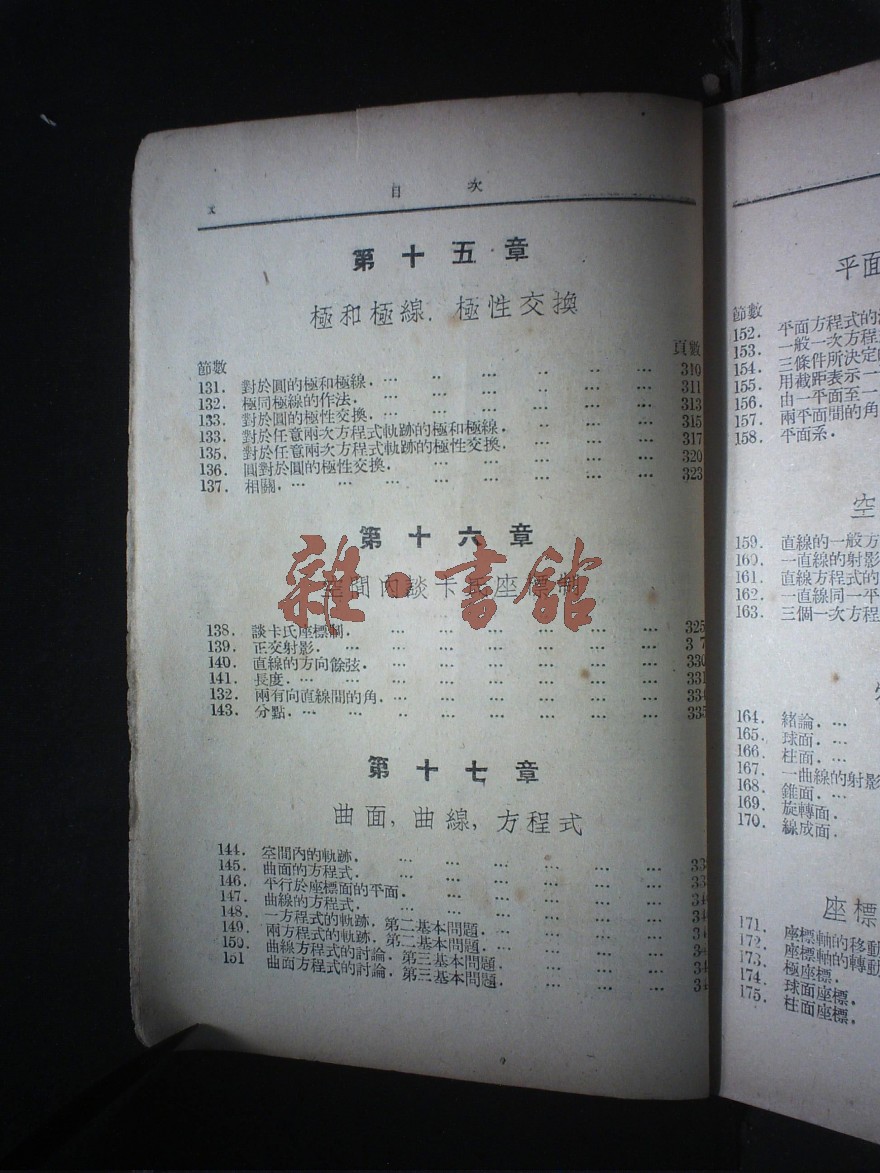 x 目 次
第 十 五 章
極和極線, 極性交換
節數 頁數
131. 對於圓的極和極線. ... .. ... ... .. ... ... 310
132. 極同極線的作法. ... .. ... ... ... ... ... 311
133. 對於圓的極性交換. ... .. ... ... ... ... ... 313
133. 對於任意兩次方程式軌跡的極和極線. ... ... ... ... 315
135. 對於任意兩次方程式軌跡的極性交換. ... ... ... ... 317
136. 圓對於圓的極性交換. ... ... ... ... ... ... 320
137. 相關. ... ... ... ... ... ... ... ... 323
第 十 六 章
空間內談卡氏座標制
雜·書館
138. 談卡氏座標制. ... ... ... ... ... ... ... 325
139. 正交射影. ... ... ... ... ... ... ... 3 7
140. 直線的方向餘弦. ... ... ... ... ... ... 330
141. 長度. ... ... ... ... ... ... ... ... 331
132. 兩有向直線間的角. ... ... ... ... ... ... 334
143. 分點. ... ... .. ... ... ... ... ... 335
第 十 七 章
曲面, 曲線, 方程式
144. 空間內的軌跡. ... ... ... ... ... ... 33
145. 曲面的方程式. ... ... ... ... ... ... 33
146. 平行於座標面的平面. ... ... ... ... ... 34
147. 曲線的方程式. ... ... ... ... ... ... 34
148. 一方程式的軌跡, 第二基本問題. ... ... ... ... 34
149. 兩方程式的軌跡, 第二基本問題. ... ... ... ... 34
150. 曲線方程式的討論, 第三基本問題. ... ... ... 34
151 曲面方程式的討論, 第三基本問題. ... ... ... 34
平面
節數
152. 平面方程式的
153. 一般一次方程
154. 三條件所決定
155. 用截距表示一
156. 由一平面至一
157. 兩平面間的角
158. 平面系.
空
159. 直線的一般方
160. 一直線的射影
161. 直線方程式的
162. 一直線同一平
163. 三個一次方程
164. 緒論. ...
165. 球面. ...
166. 柱面. ...
167. 一曲線的射影
168. 錐面. ...
169. 旋轉面.
170. 線成面.
座標
171. 座標軸的移動
172. 座標軸的轉動
173. 極座標.
174. 球面座標.
175. 柱面座標.